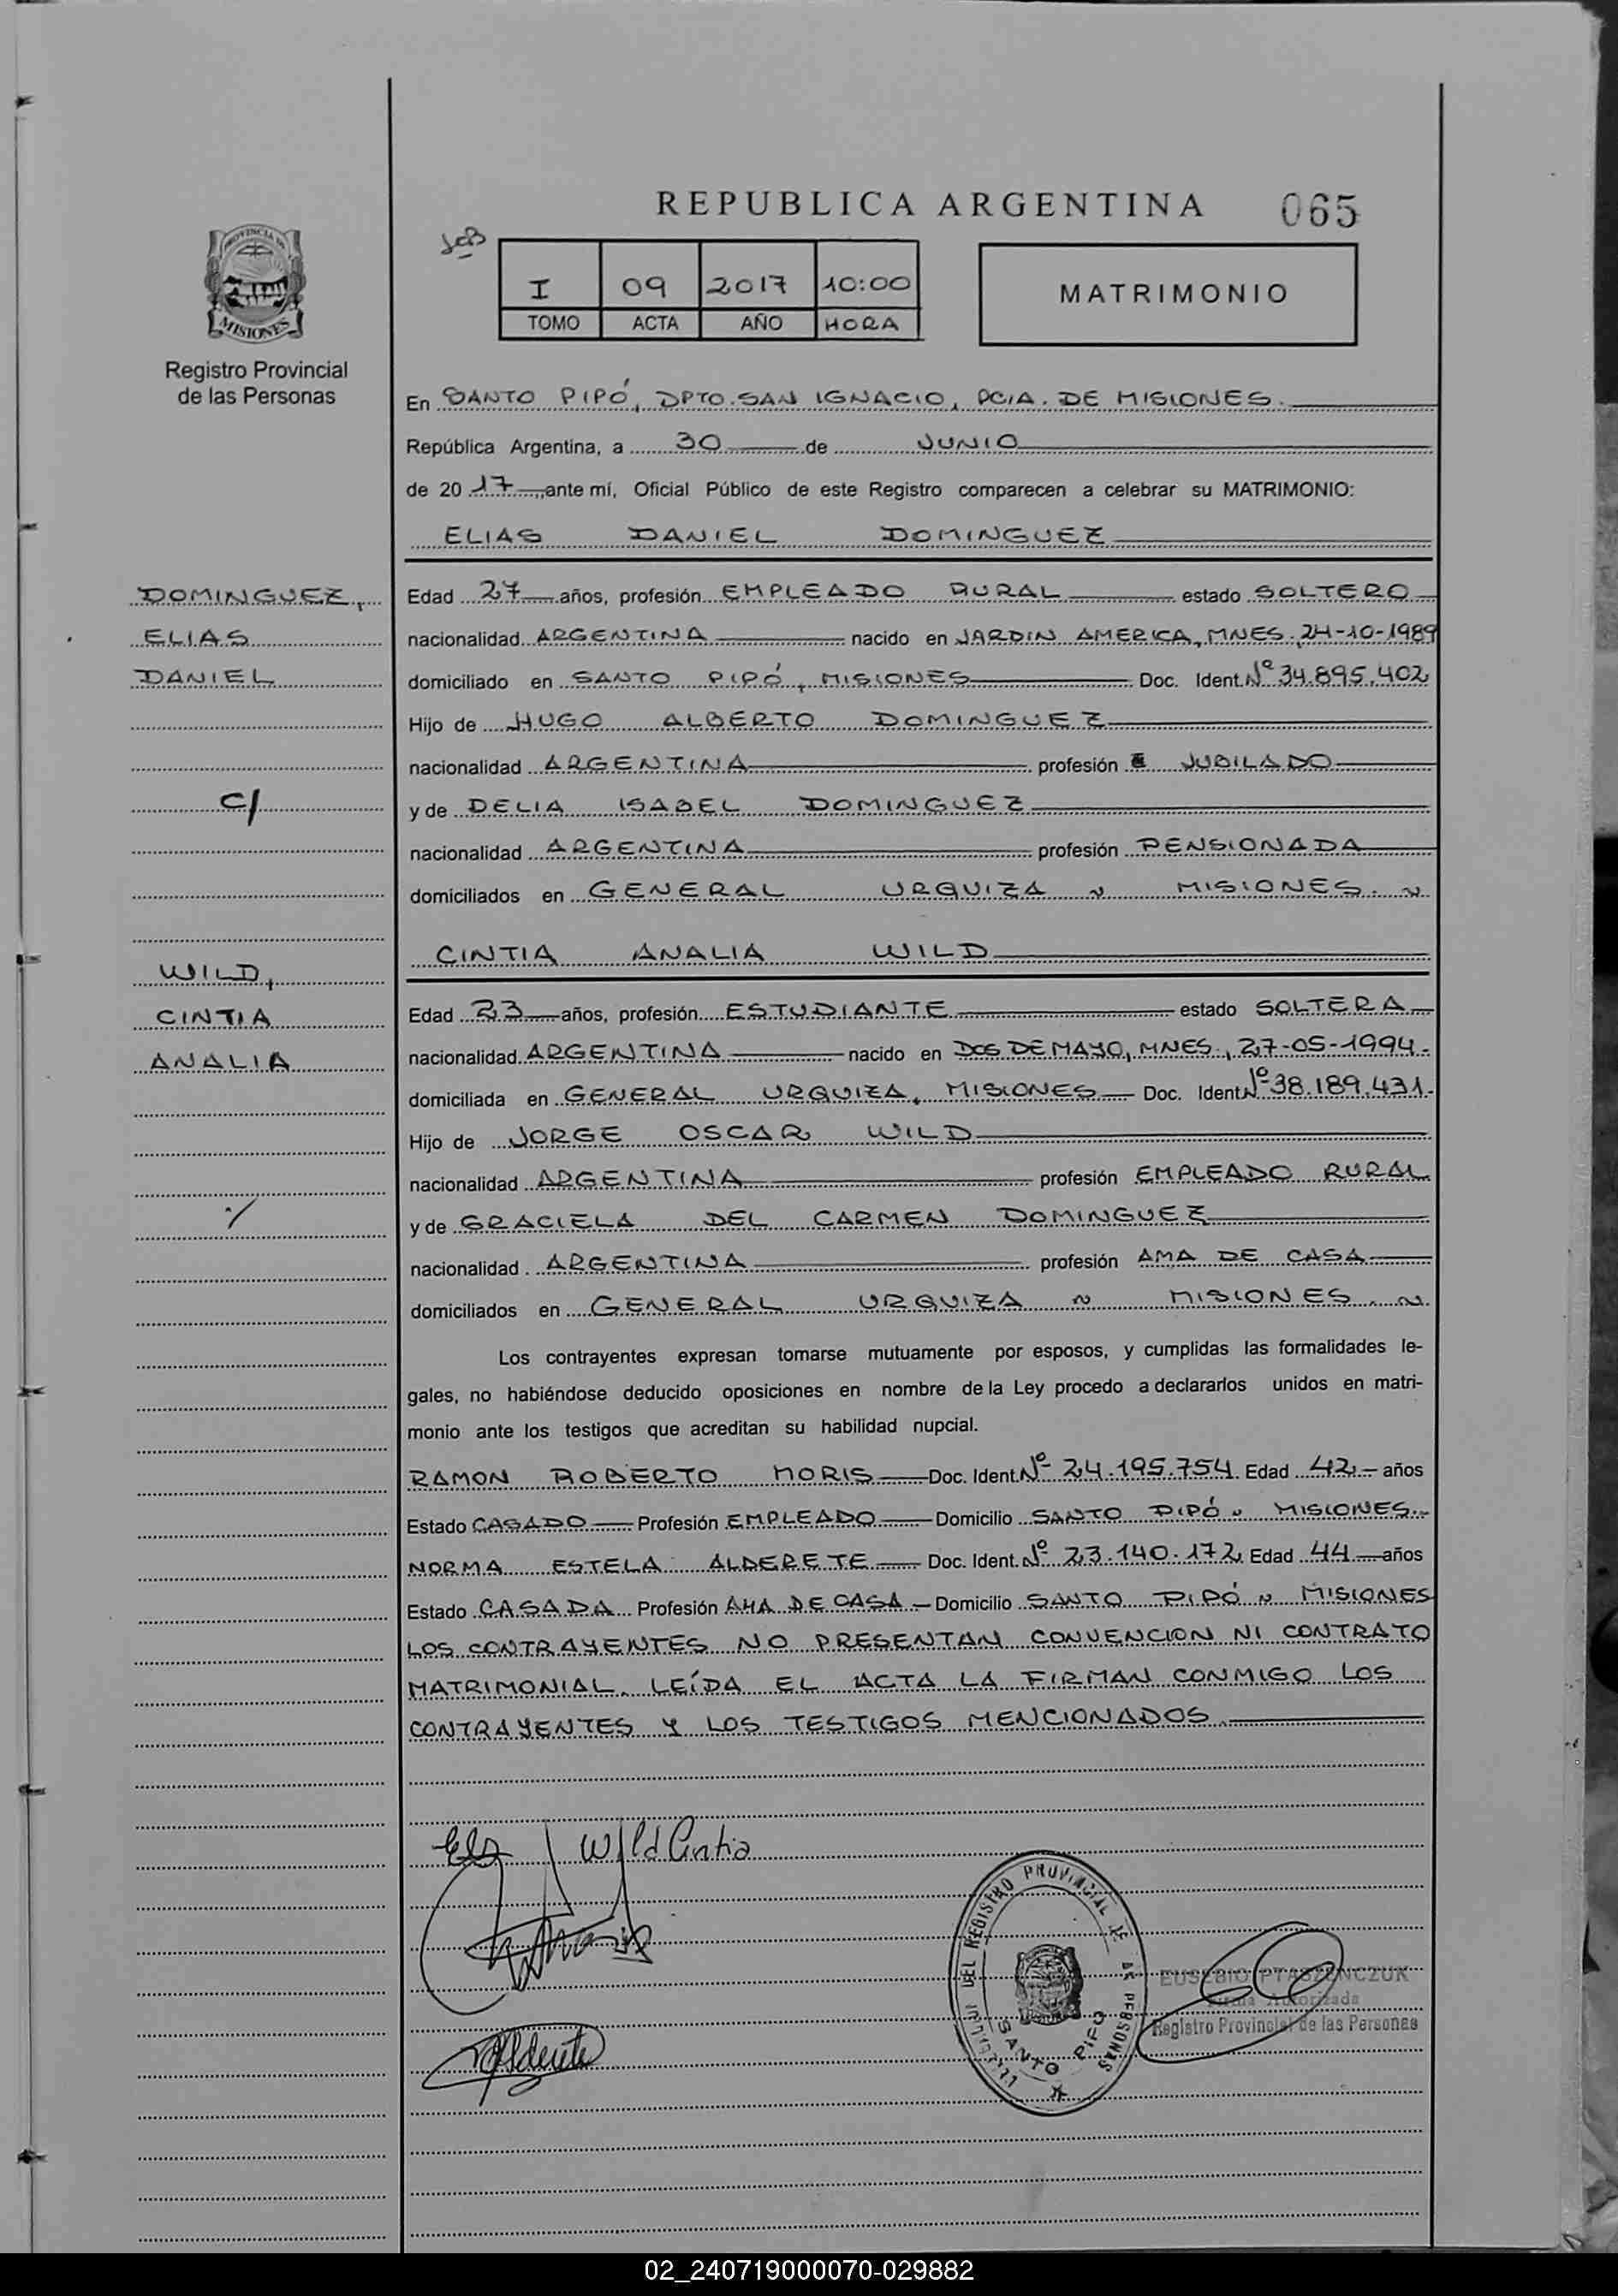 REPUBLICA ARGENTINA 065
PROVINCIA DE
MISIONES
Registro Provincial
de las Personas
I 09 2017 10:00
TOMO ACTA AÑO HORA
MATRIMONIO
En SANTO PIPÓ, DPTO. SAN IGNACIO, PCIA. DE MISIONES.
República Argentina, a 30 de JUNIO
de 2017, ante mí, Oficial Público de este Registro comparecen a celebrar su MATRIMONIO:
ELIAS DANIEL DOMINGUEZ
DOMINGUEZ,
ELIAS
DANIEL
C/
WILD,
CINTIA
ANALIA
Edad 27 años, profesión EMPLEADO RURAL estado SOLTERO
nacionalidad ARGENTINA nacido en JARDIN AMERICA, MNES. 24-10-1989
domiciliado en SANTO PIPÓ, MISIONES Doc. Ident. Nº 34.895.402
Hijo de HUGO ALBERTO DOMINGUEZ
nacionalidad ARGENTINA profesión JUBILADO
y de DELIA ISABEL DOMINGUEZ
nacionalidad ARGENTINA profesión PENSIONADA
domiciliados en GENERAL URQUIZA ~ MISIONES. ~
CINTIA ANALIA WILD
Edad 23 años, profesión ESTUDIANTE estado SOLTERA
nacionalidad ARGENTINA nacido en DOS DE MAYO, MNES., 27-05-1994.
domiciliada en GENERAL URQUIZA, MISIONES Doc. Ident. Nº 38.189.431.
Hijo de JORGE OSCAR WILD
nacionalidad ARGENTINA profesión EMPLEADO RURAL
y de GRACIELA DEL CARMEN DOMINGUEZ
nacionalidad ARGENTINA profesión AMA DE CASA
domiciliados en GENERAL URQUIZA ~ MISIONES. ~
Los contrayentes expresan tomarse mutuamente por esposos, y cumplidas las formalidades le-
gales, no habiéndose deducido oposiciones en nombre de la Ley procedo a declararlos unidos en matri-
monio ante los testigos que acreditan su habilidad nupcial.
RAMON ROBERTO MORIS Doc. Ident. Nº 24.195.754 Edad 42 años
Estado CASADO Profesión EMPLEADO Domicilio SANTO PIPÓ ~ MISIONES.
NORMA ESTELA ALDERETE Doc. Ident. Nº 23.140.172 Edad 44 años
Estado CASADA Profesión AMA DE CASA Domicilio SANTO PIPÓ ~ MISIONES
LOS CONTRAYENTES NO PRESENTAN CONVENCION NI CONTRATO
MATRIMONIAL. LEÍDA EL ACTA LA FIRMAN CONMIGO LOS
CONTRAYENTES Y LOS TESTIGOS MENCIONADOS.
Wild Cintia
DEL REGISTRO PROVINCIAL DE PERSONAS
SANTO PIPO
EUSEBIO PTASZENCZUK
Firma Autorizada
Registro Provincial de las Personas
02_240719000070-029882